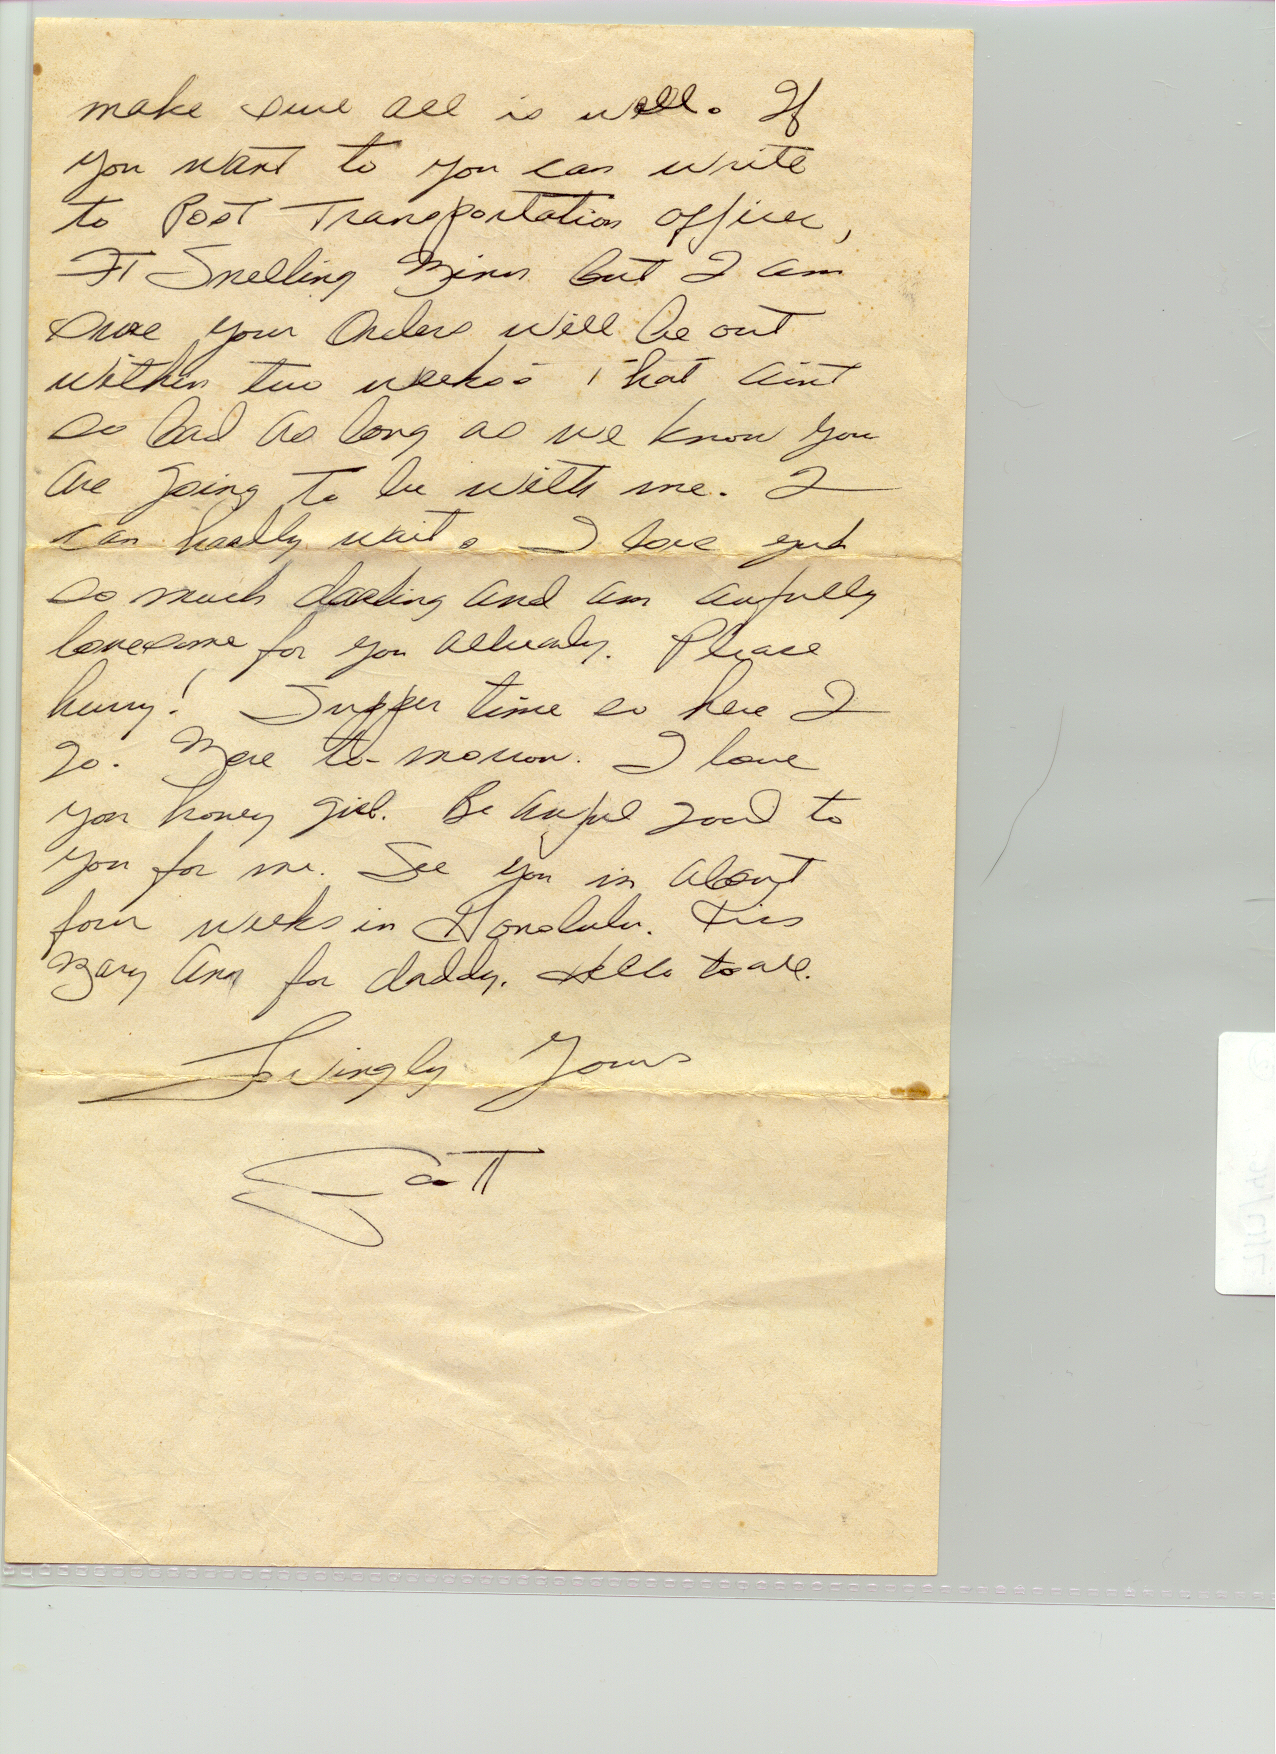 make sure all is well. If
you want to you can write
to Post Transportation officer,
Ft Snelling Minn but I am
sure your orders will be out
within two weeks. That aint
so bad as long as we know you
are going to be with me. I
can hardly wait. I love you
so much darling and am awfully
lonesome for you already. Please
hurry! Supper time so here I
go. More to-morrow. I love
you honey girl. Be awful good to
you for me. See you in about
four weeks in Honolulu. Kiss
Mary Ann for daddy. Hello to all.
Lovingly Yours
Scott